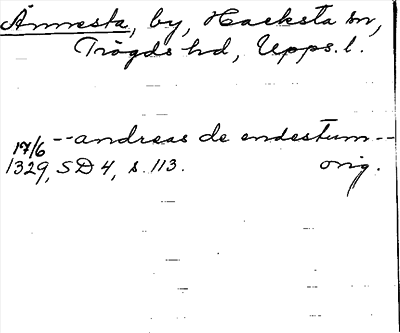 Ännesta, by, Hacksta sn,
Trögds hd, Upps. l.
17/6 -- andreas de endestum --
1329, SD 4, s. 113. orig.